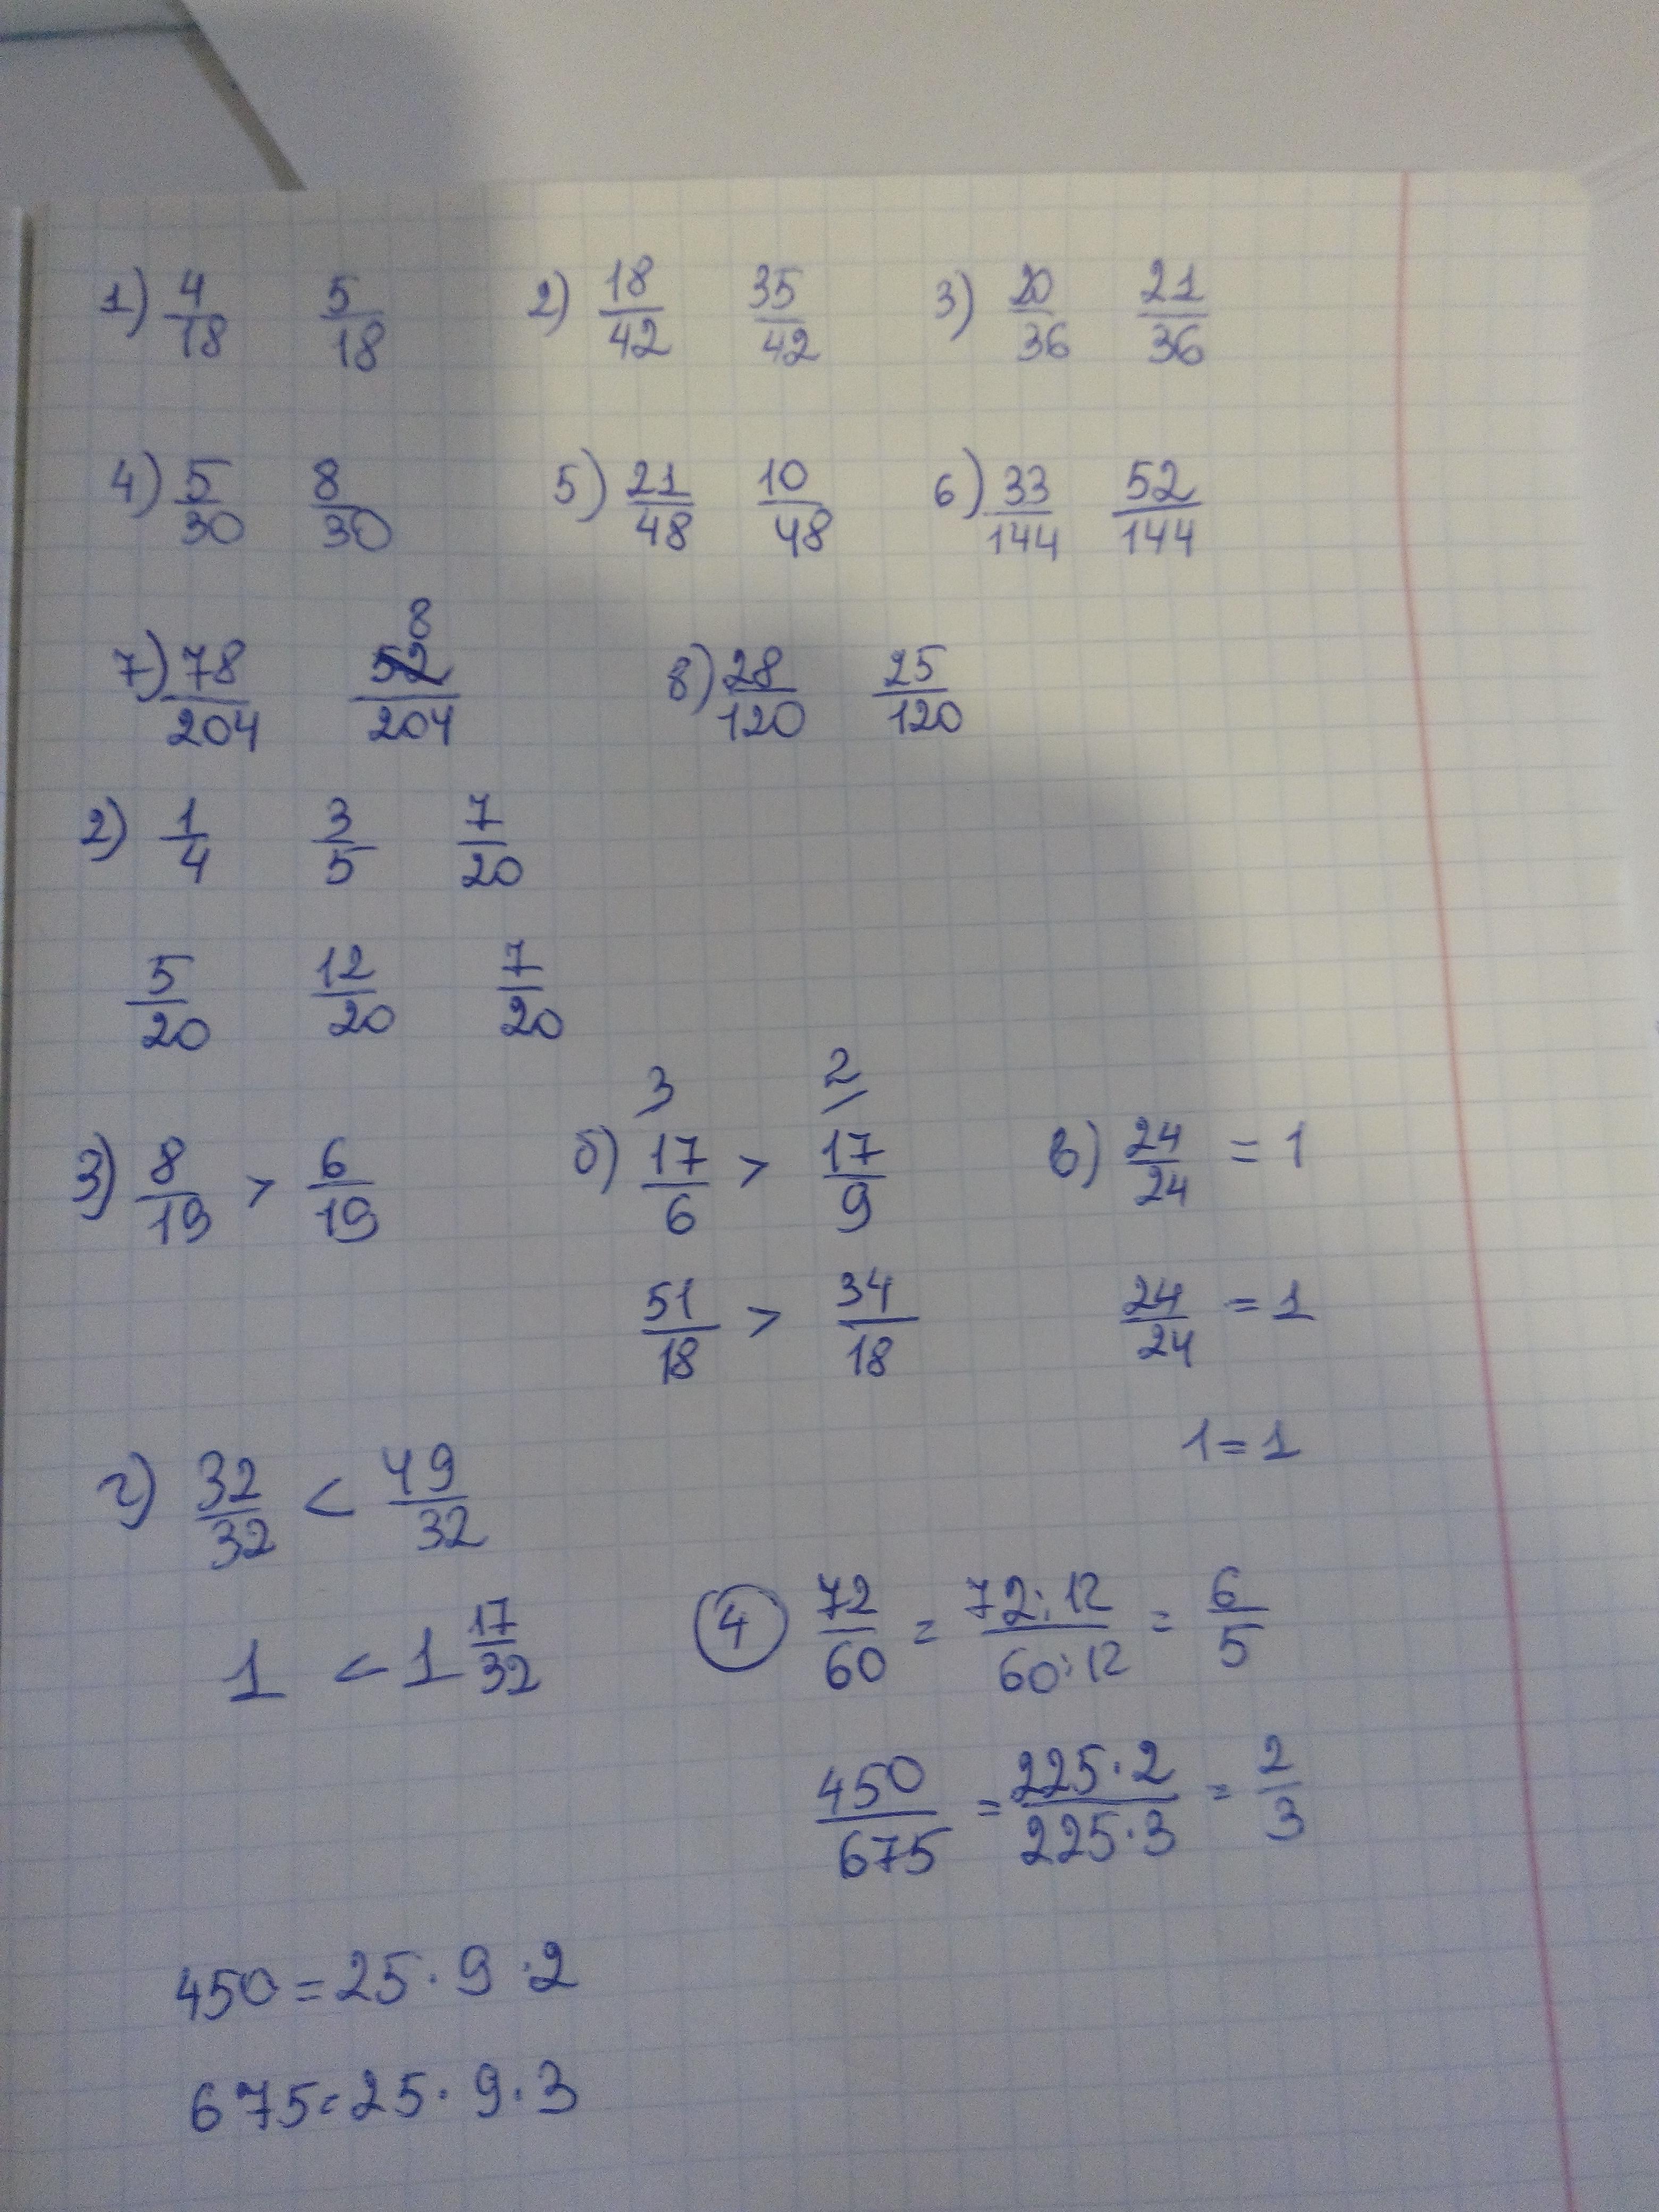 1) 4/18 5/18 2) 18/42 35/42 3) 20/36 21/36
4) 5/30 8/30 5) 21/48 10/48 6) 33/144 52/144
7) 78/204 8/204 8) 28/120 25/120
2) 1/4 3/5 7/20
5/20 12/20 7/20
3 2
3) 8/19 > 6/19 б) 17/6 > 17/9 в) 24/24 = 1
51/18 > 34/18 24/24 = 1
1 = 1
г) 32/32 < 49/32
1 < 1 17/32 4 72/60 = 72:12/60:12 = 6/5
450/675 = 225·2/225·3 = 2/3
450 = 25·9·2
675 = 25·9·3